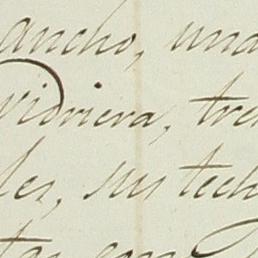 ancho, una
vidriera, tre
les, sus tech